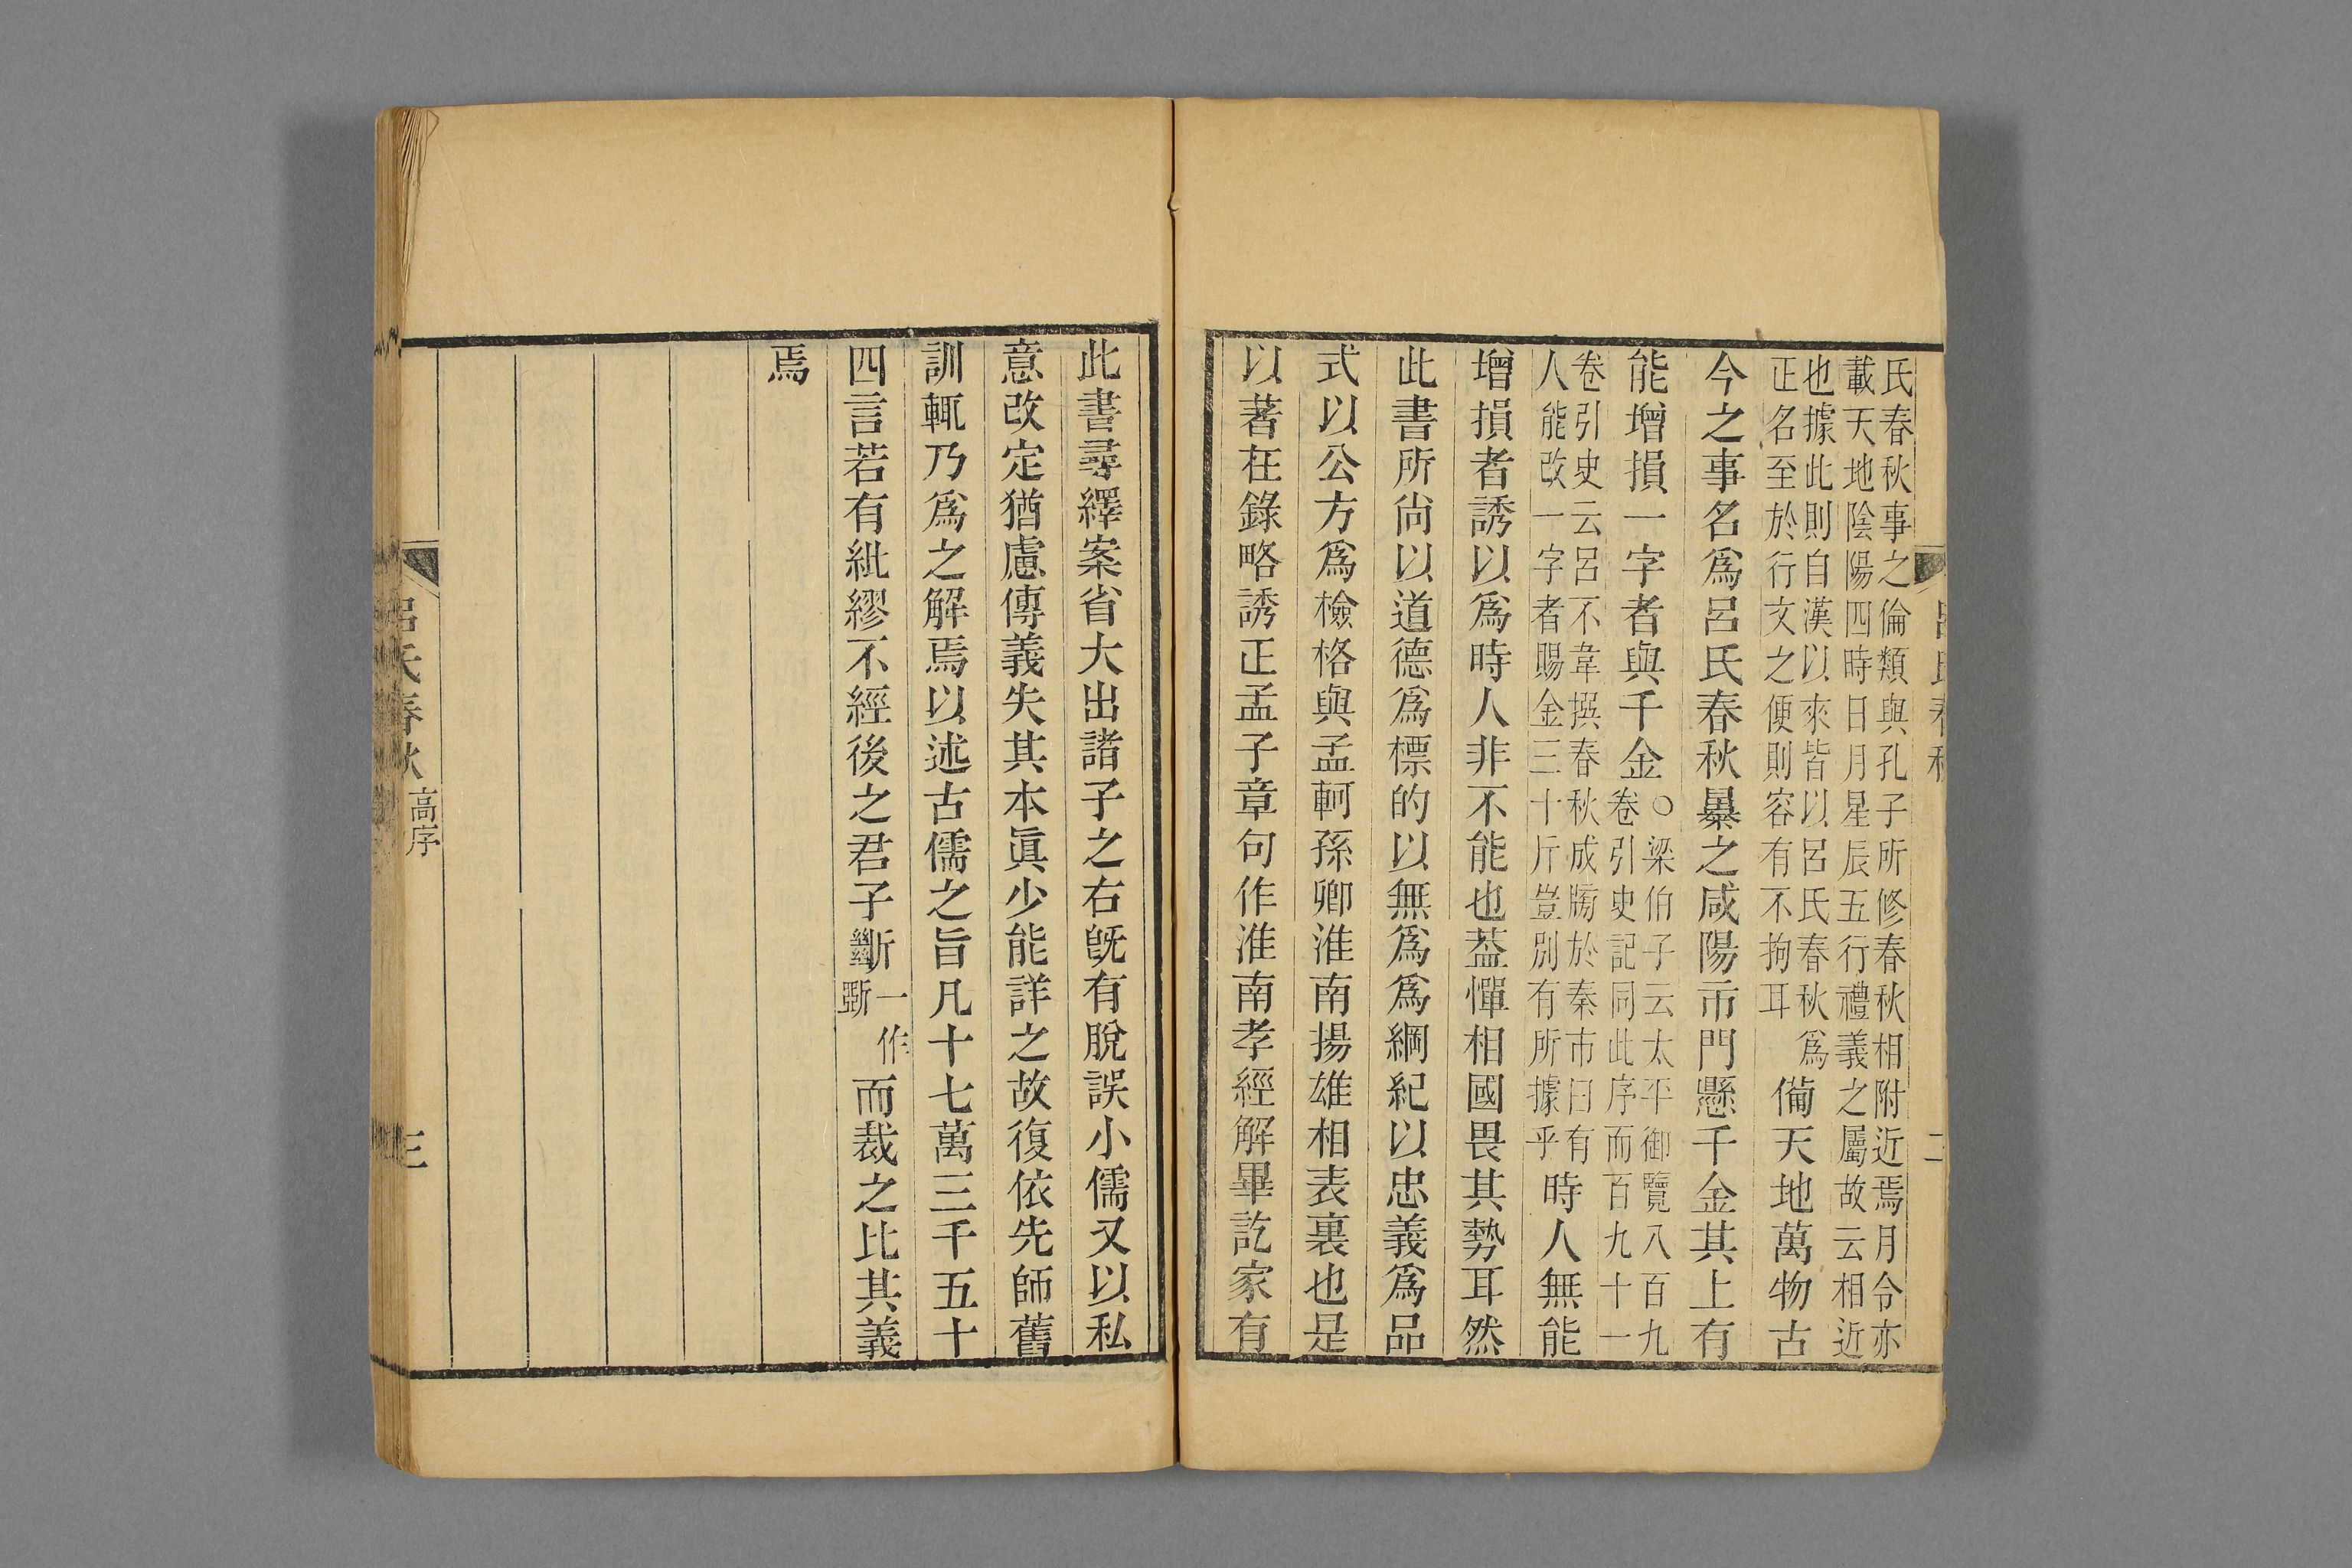 氏春秋事之倫類與孔子所修春秋相附近焉月令亦
載天地陰陽四時日月星辰五行禮義之屬故云相近
也據此則自漢以來皆以呂氏春秋爲
正名至於行文之便則容有不拘耳
備天地萬物古
今之事名爲呂氏春秋㬥之咸陽市門懸千金其上有
能增損一字者與千金
○梁伯子云太平御覽八百九
卷引史記同此序而百九十一
卷引史云呂不韋撰春秋成牓於秦市曰有
人能改一字者賜金三十斤豈別有所據乎
時人無能
增損者誘以爲時人非不能也葢憚相國畏其勢耳然
此書所尙以道德爲標的以無爲爲綱紀以忠義爲品
式以公方爲檢格與孟軻孫卿淮南揚雄相表裏也是
以著在錄略誘正孟子章句作淮南孝經解畢訖家有
呂氏春秋
二
此書尋繹案省大出諸子之右旣有脫誤小儒又以私
意改定猶慮傳義失其本眞少能詳之故復依先師舊
訓輒乃爲之解焉以述古儒之旨凡十七萬三千五十
四言若有紕繆不經後之君子斷
一作
斲
而裁之比其義
焉
呂氏春秋
高序
三